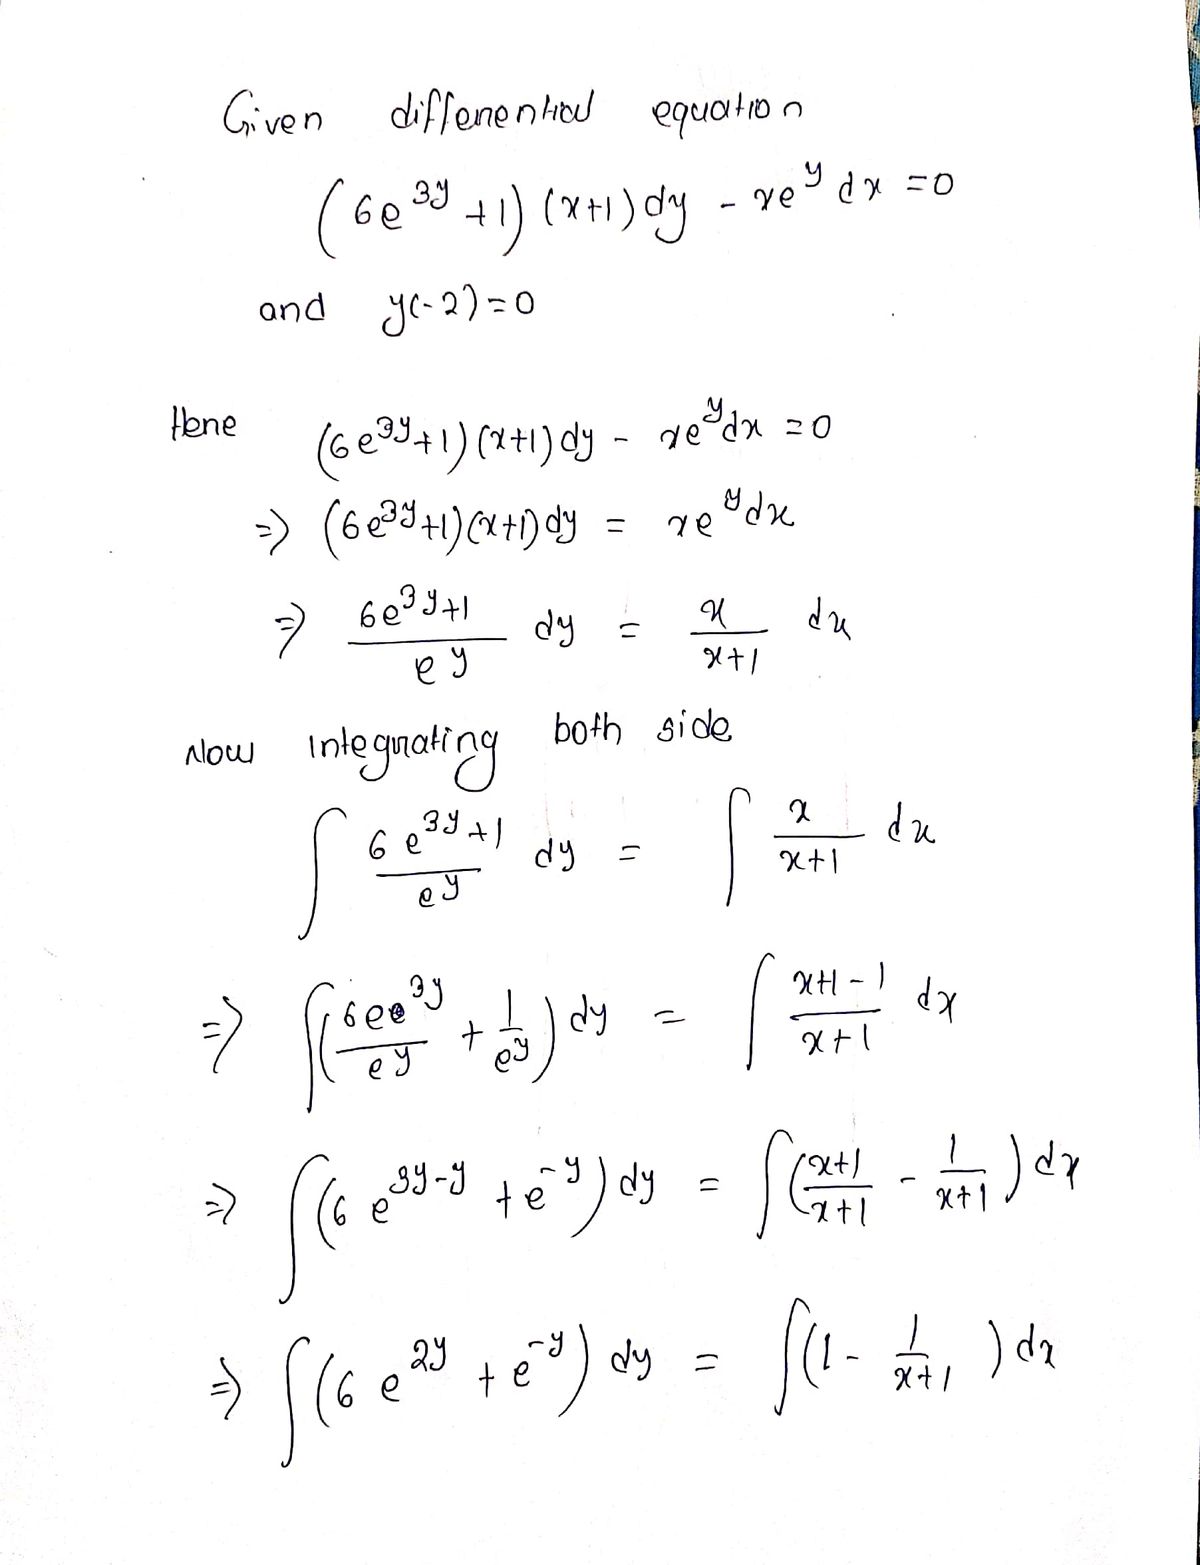 Given differential equation
(6e^{3y} +1) (x+1) dy - xe^y dx =0
and y(-2)=0
Here (6e^{3y}+1) (x+1) dy - xe^y dx =0
=> (6e^{3y}+1)(x+1) dy = xe^y dx
=> \frac{6e^{3y}+1}{e^y} dy = \frac{x}{x+1} dx
Now integrating both side
∫ \frac{6e^{3y}+1}{e^y} dy = ∫ \frac{x}{x+1} dx
=> ∫(\frac{6ee^{3y}}{e^y} + \frac{1}{e^y}) dy = ∫ \frac{x+1-1}{x+1} dx
=> ∫(6 e^{3y-y} + e^{-y}) dy = ∫(\frac{x+1}{x+1} - \frac{1}{x+1}) dx
=> ∫(6 e^{2y} + e^{-y}) dy = ∫(1 - \frac{1}{x+1}) dx